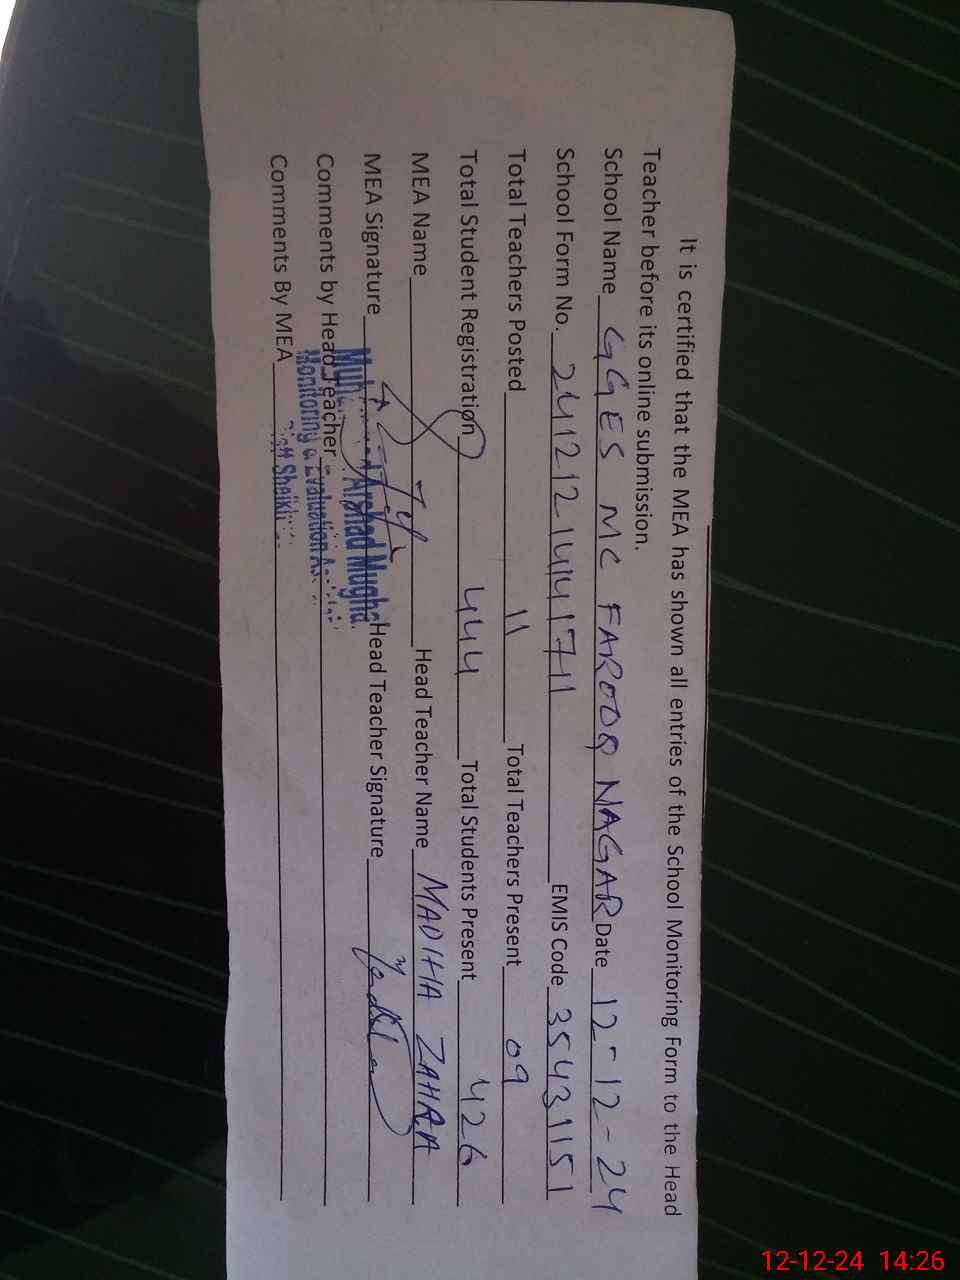 It is certified that the MEA has shown all entries of the School Monitoring Form to the Head
Teacher before its online submission.
School Name GGES MC FAROOQ NAGAR Date 12-12-24
School Form No. 24121214141711 EMIS Code 35431151
Total Teachers Posted 11 Total Teachers Present 09
Total Student Registration 444 Total Students Present 426
MEA Name Head Teacher Name MADIHA ZAHRA
MEA Signature Head Teacher Signature
Arshad Mughal
Comments by Head Teacher
Monitoring & Evaluation
Comments By MEA
Sheikh
12-12-24 14:26